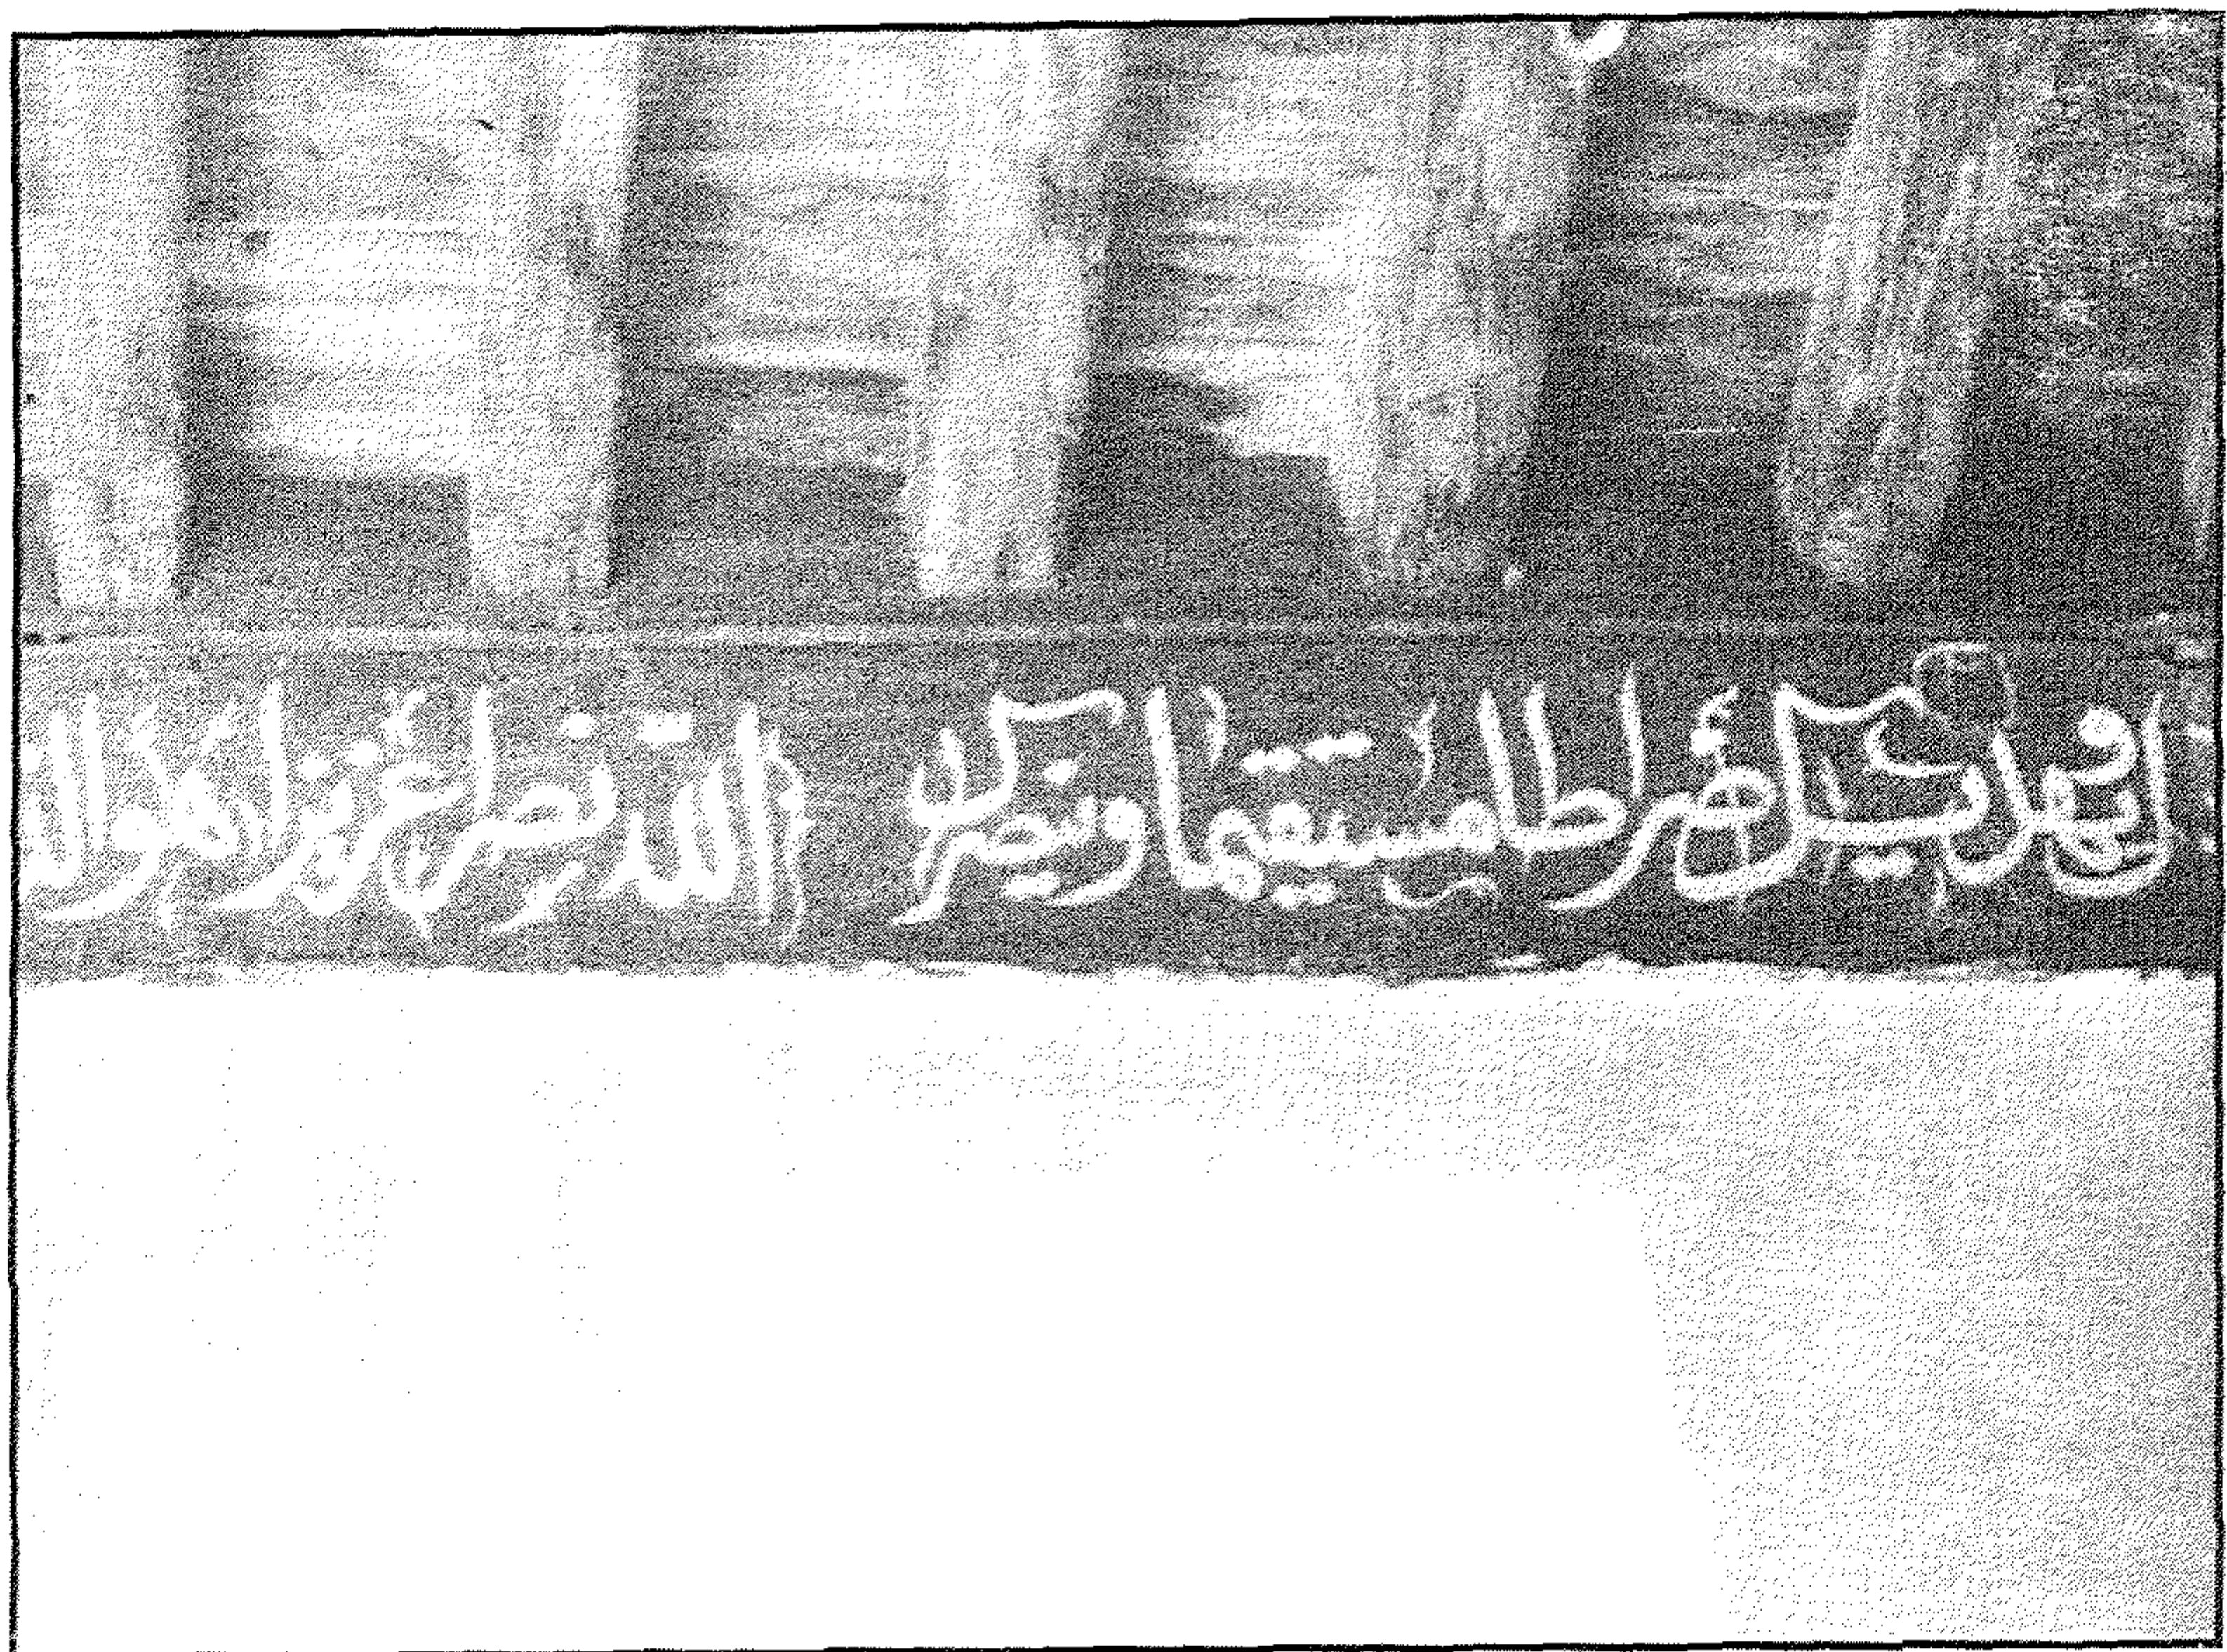 ويهديك صراطا مستقيما وينصرك الله نصرا عزيزا هو